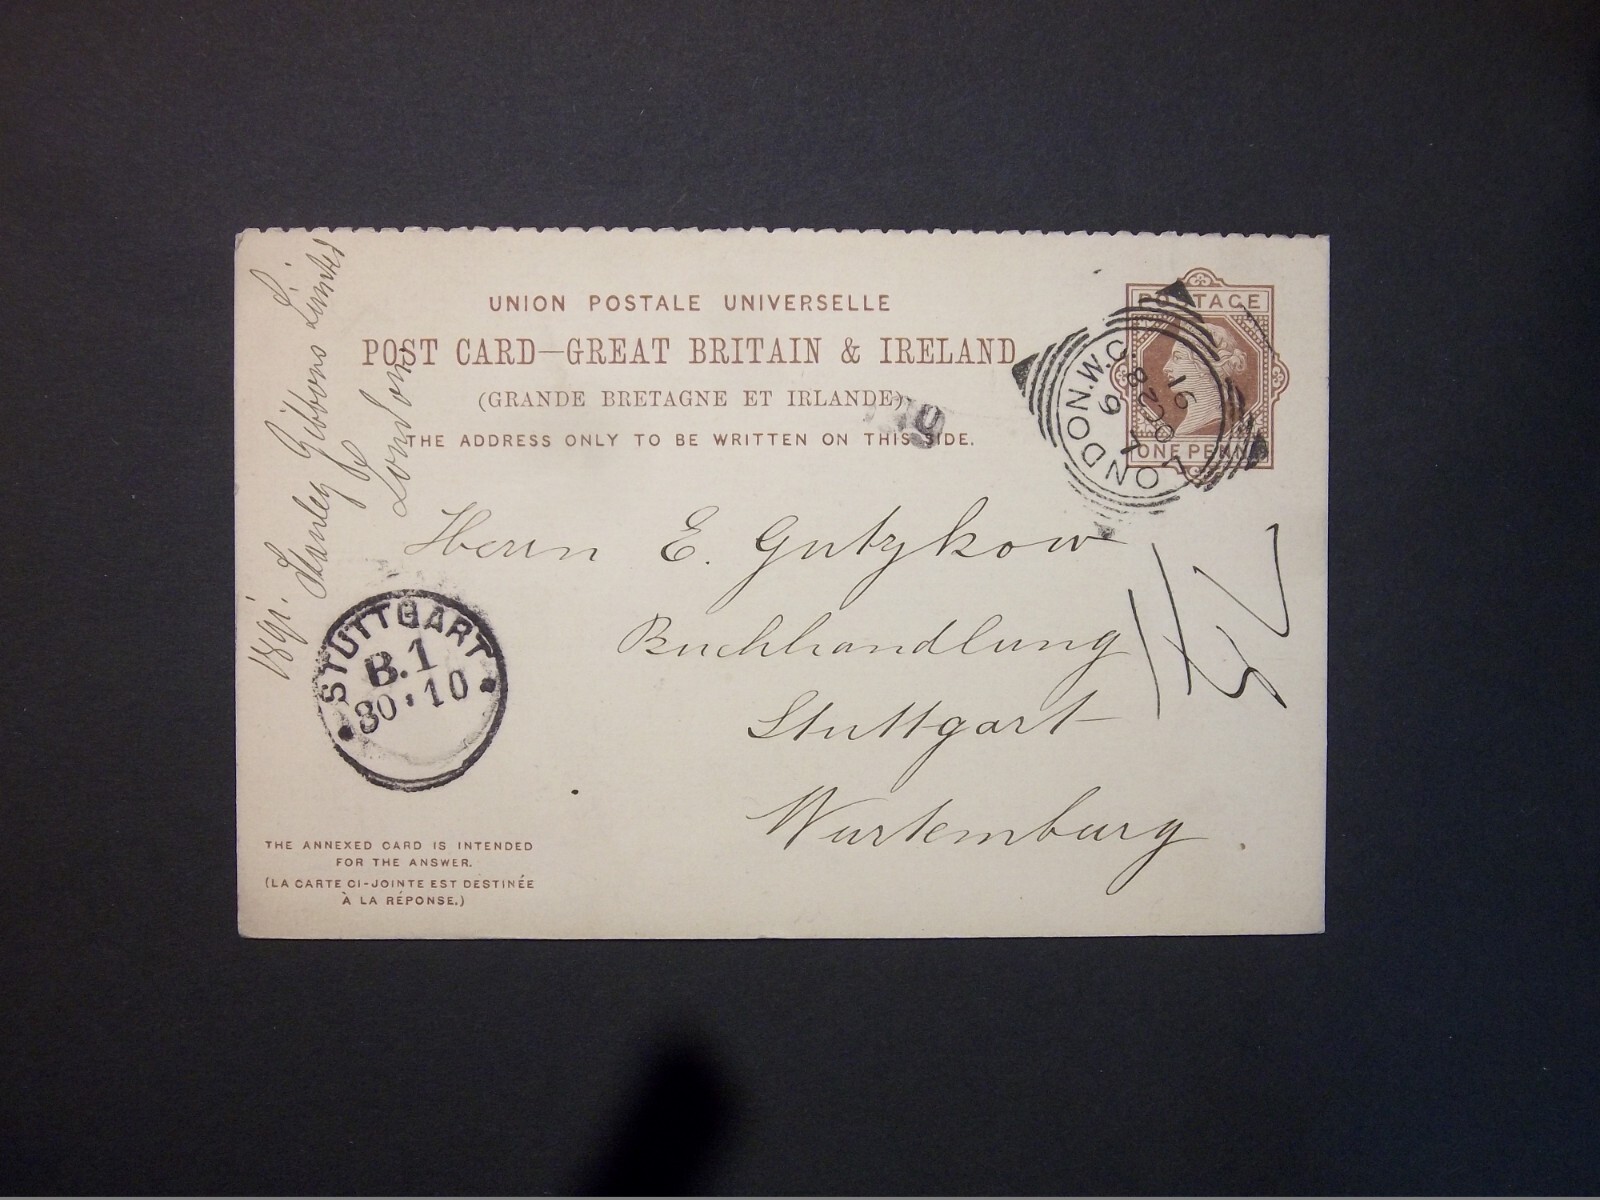 UNION POSTALE UNIVERSELLE
POST CARD—GREAT BRITAIN & IRELAND
(GRANDE BRETAGNE ET IRLANDE)
THE ADDRESS ONLY TO BE WRITTEN ON THIS SIDE.
POSTAGE
ONE PENNY
LONDON.W.C
6
OC 28
91
Stanley Gibbons Limited
London
Herrn E. Gutzkow
Buchhandlung
Stuttgart
Wurtemburg
STUTTGART
B.1
30.10
THE ANNEXED CARD IS INTENDED
FOR THE ANSWER.
(LA CARTE CI-JOINTE EST DESTINÉE
À LA RÉPONSE.)